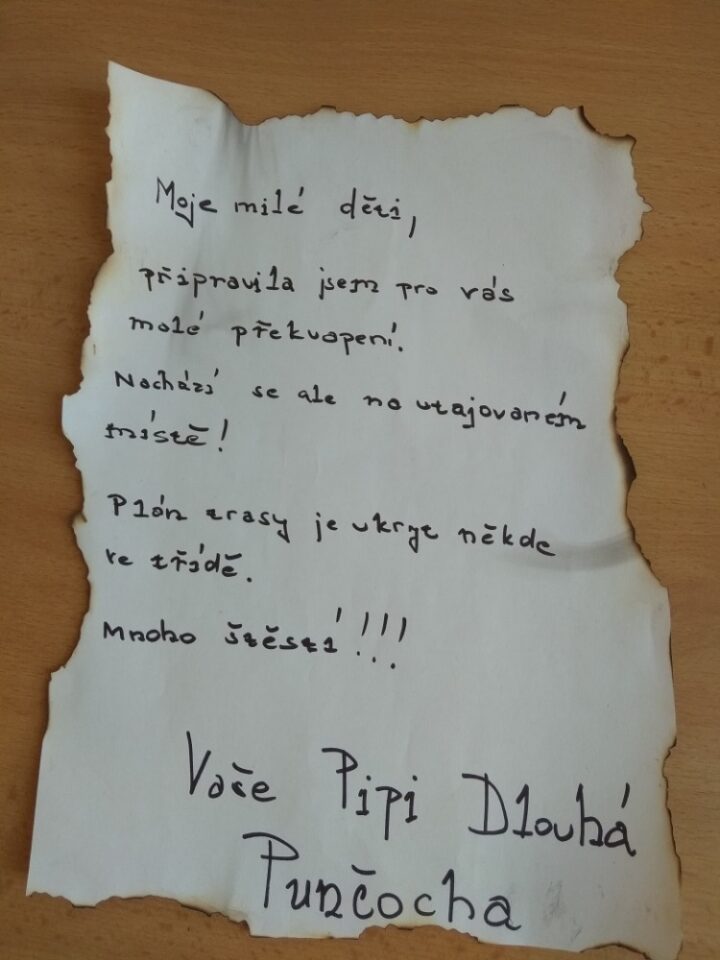 Moje milé děti,
připravila jsem pro vás
malé překvapení.
Nachází se ale na utajovaném
místě!
Plán trasy je ukryt někde
ve třídě.
Mnoho štěstí!!!
Vaše Pipi Dlouhá
Punčocha